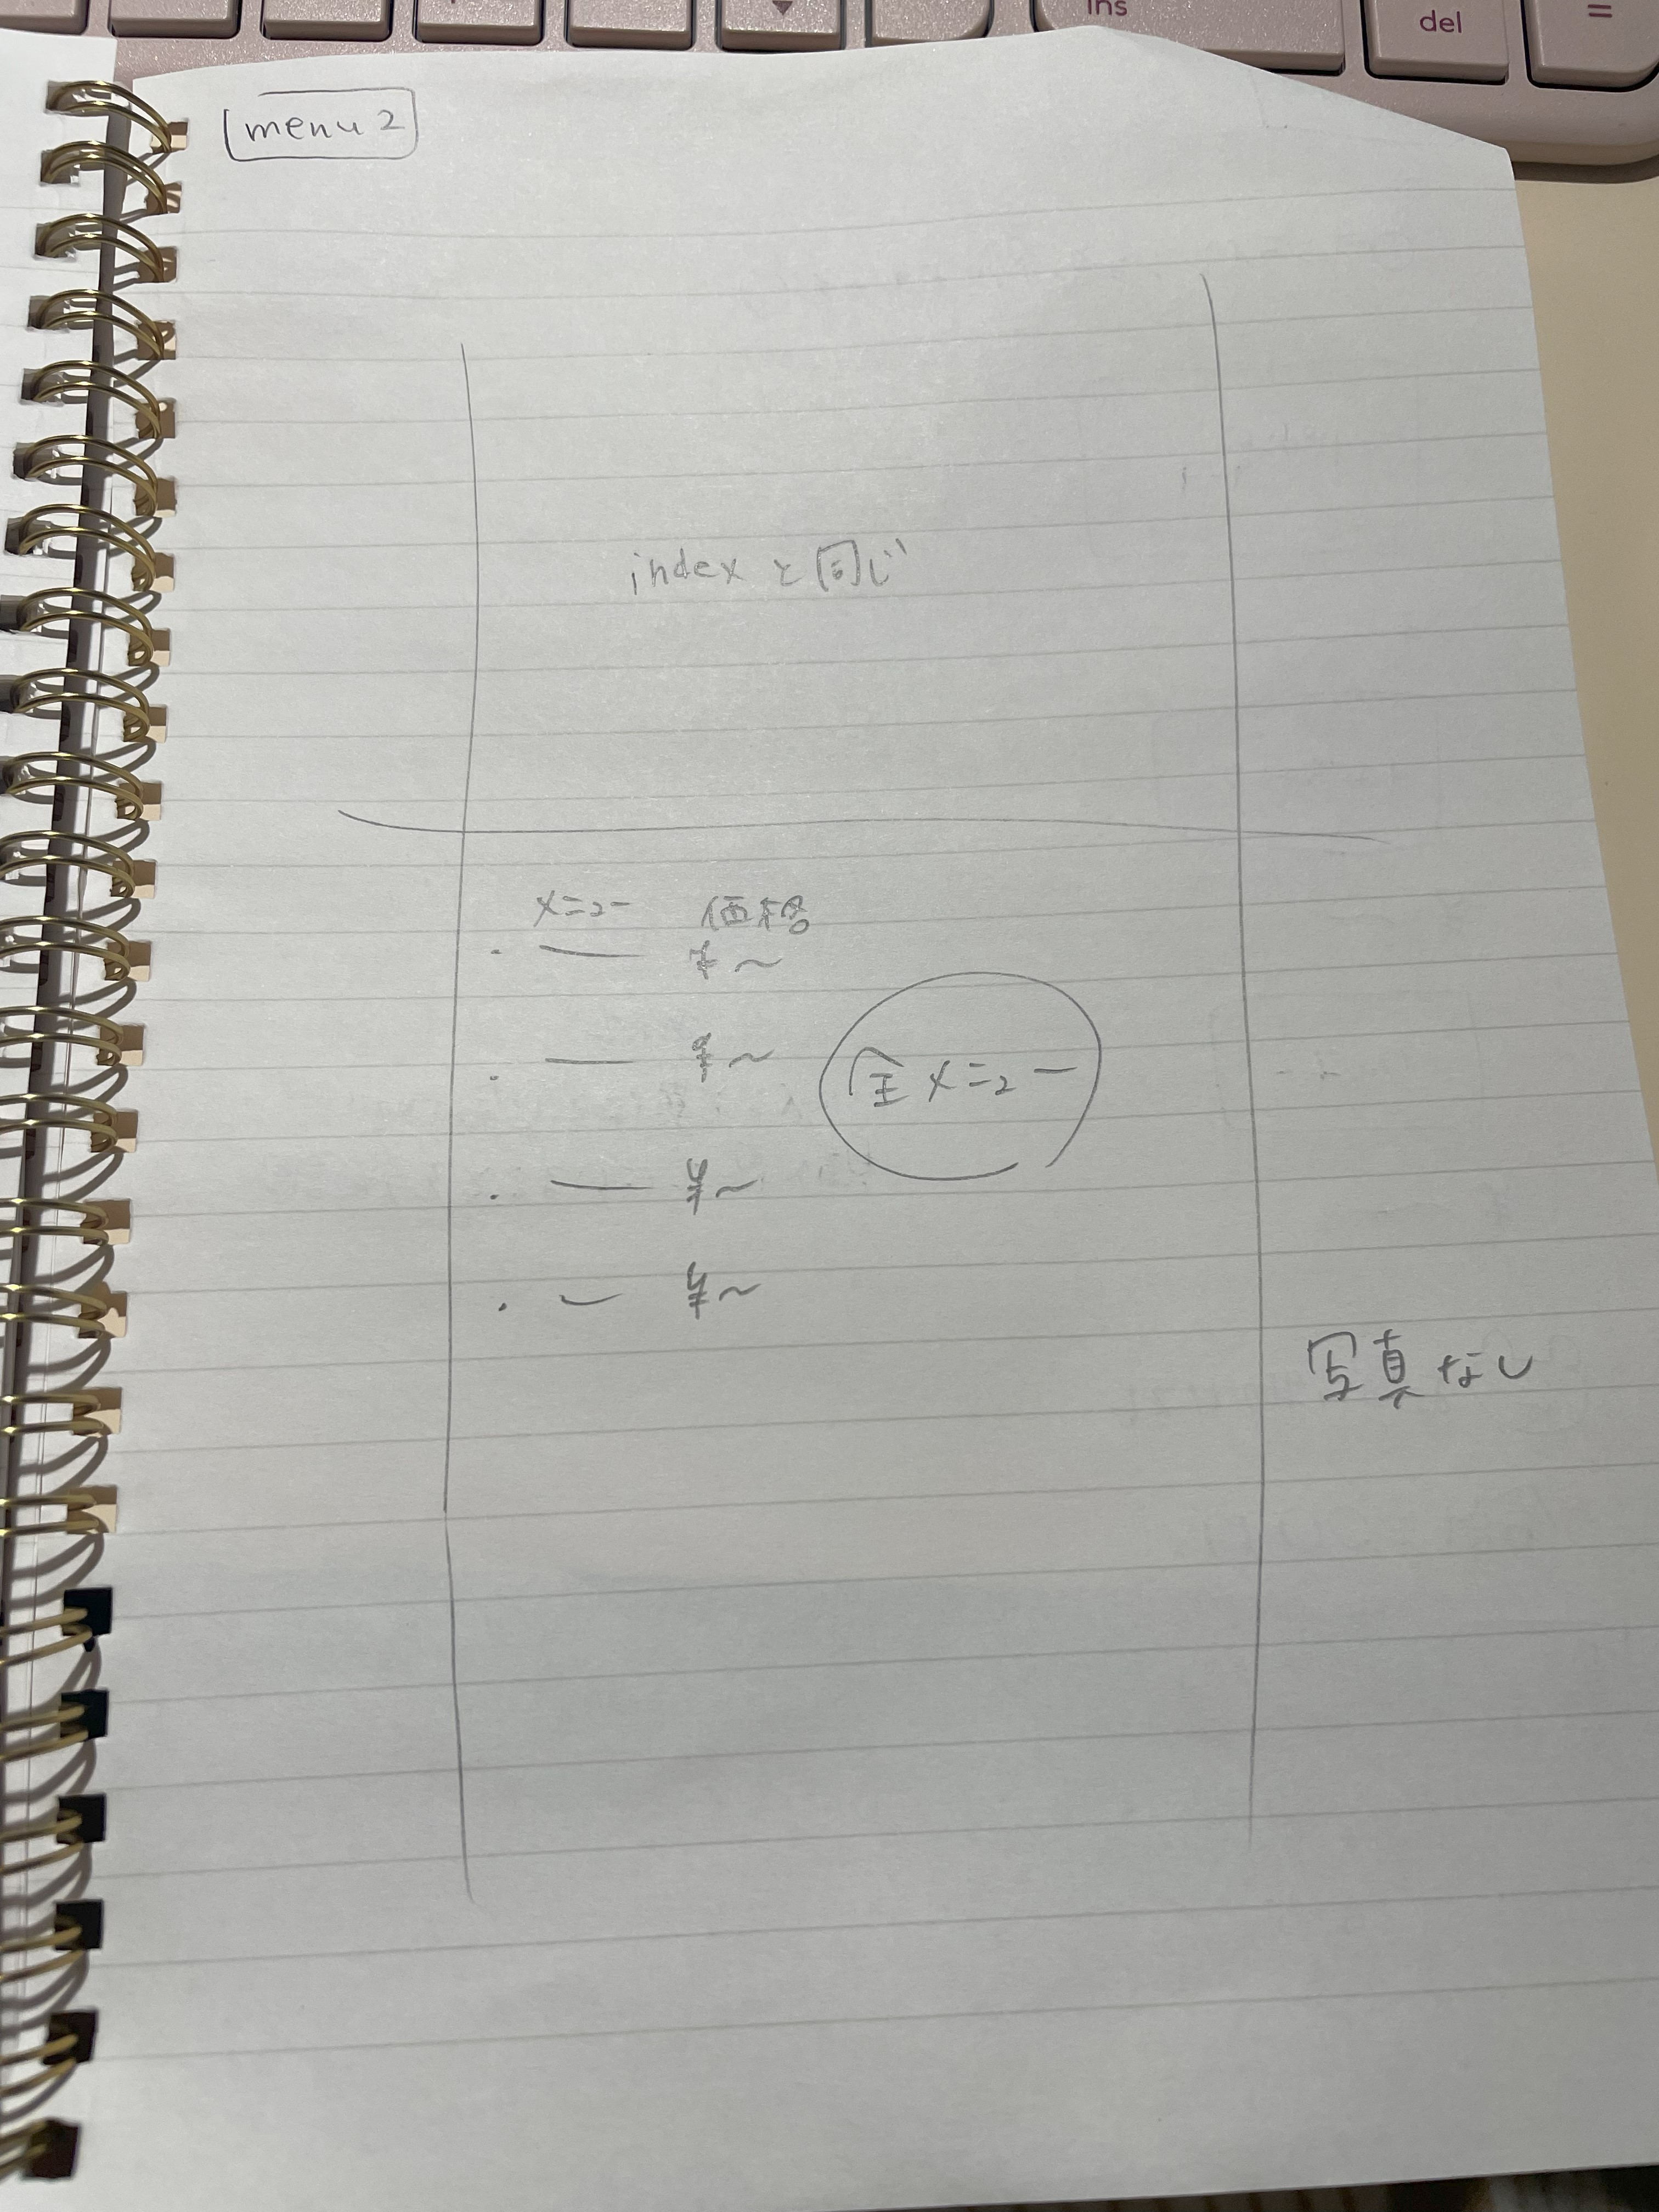 ins
del
=
menu2
indexと同じ
メニュー 価格
・ ¥～
・ ¥～
全メニュー
・ ¥～
・ ¥～
写真なし